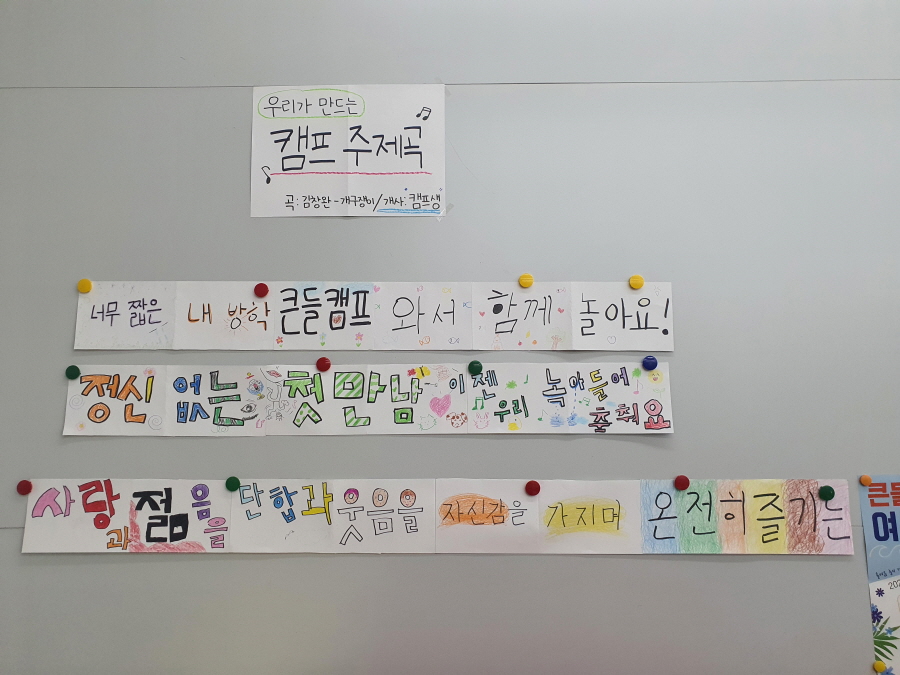 우리가 만드는
캠프 주제곡
곡: 김창완 - 개구쟁이 / 개사: 캠프생
너무 짧은 내 방학 큰들캠프 와서 함께 놀아요!
정신 없는 첫 만남 이젠 우리 녹아들어 춤춰요
사랑과 젊음을 단합과 웃음을 자신감을 가지며 온전히 즐기는
큰들
여